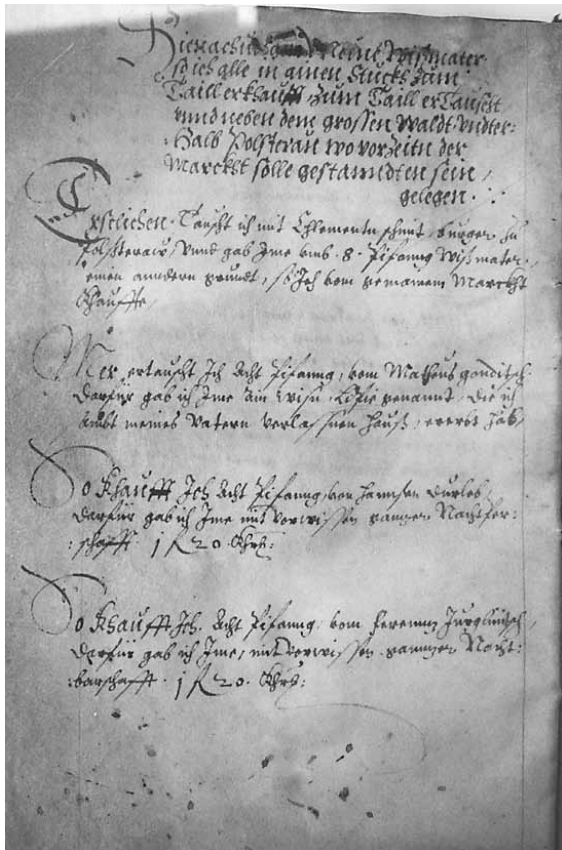 Hienach
so ich alle in ainen Stuckh zum
Taill erkhaufft zum Taill erTauscht
unnd neben dem grossen Waldt undter:
:halb Polsterau wo vorzeitn der
Marckht solle gestanndten sein,
gelegen.
Erstlichen. Tauscht ich mit Chlementn schmit, burger zu
Polssterau, unnd gab Jme umb. 8. Pifanng Wißmater,
einen anndern grundt, so Jch vom gemainem Marckht
khauffte,
Mer, ertauscht Jch Acht Pifanng, vom Matheus
darfür gab ich Jme ain wisn, genant, die ich
meines Vatern verlassnen hauß, ererbt hab,
So khaufft Jch Acht Pifanng, von
darfür gab ich Jme mit vorwissen ganzer Nachper:
:schafft. 1 f 20. khrz:
So khaufft Jch. Acht Pifanng. vom
darfür gab ich Jme, mit vorwissen ganzer Nacht:
:barschafft. 1 f 20. khrz: